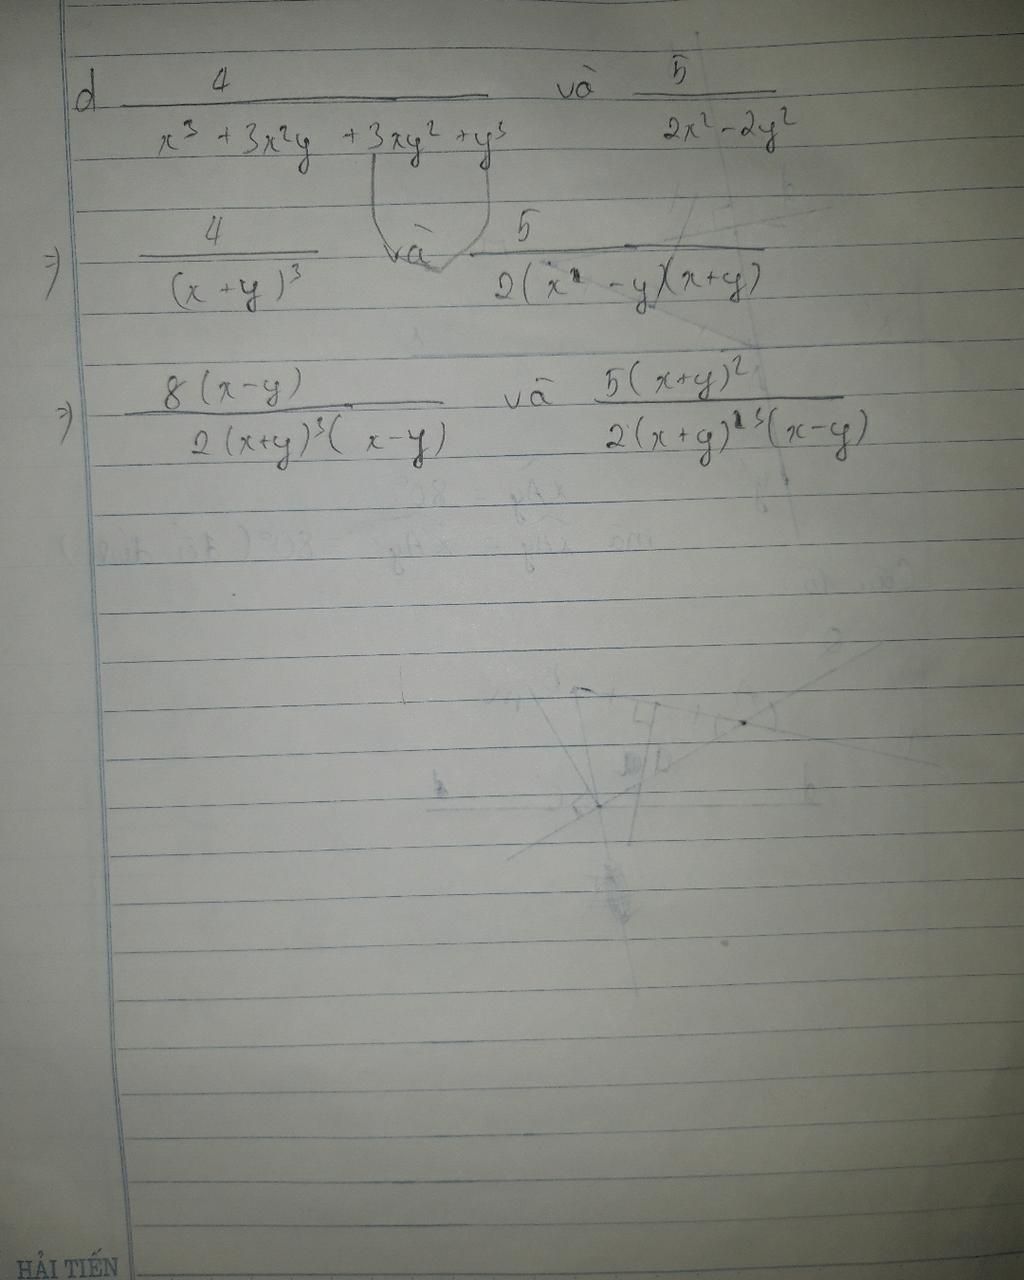 d 4/(x³ + 3x²y + 3xy² + y³) và 5/(2x² - 2y²)
⇒ 4/(x + y)³ và 5/(2(x - y)(x + y))
⇒ 8(x - y)/(2(x + y)³(x - y)) và 5(x + y)²/(2(x + y)³(x - y))
HẢI TIẾN